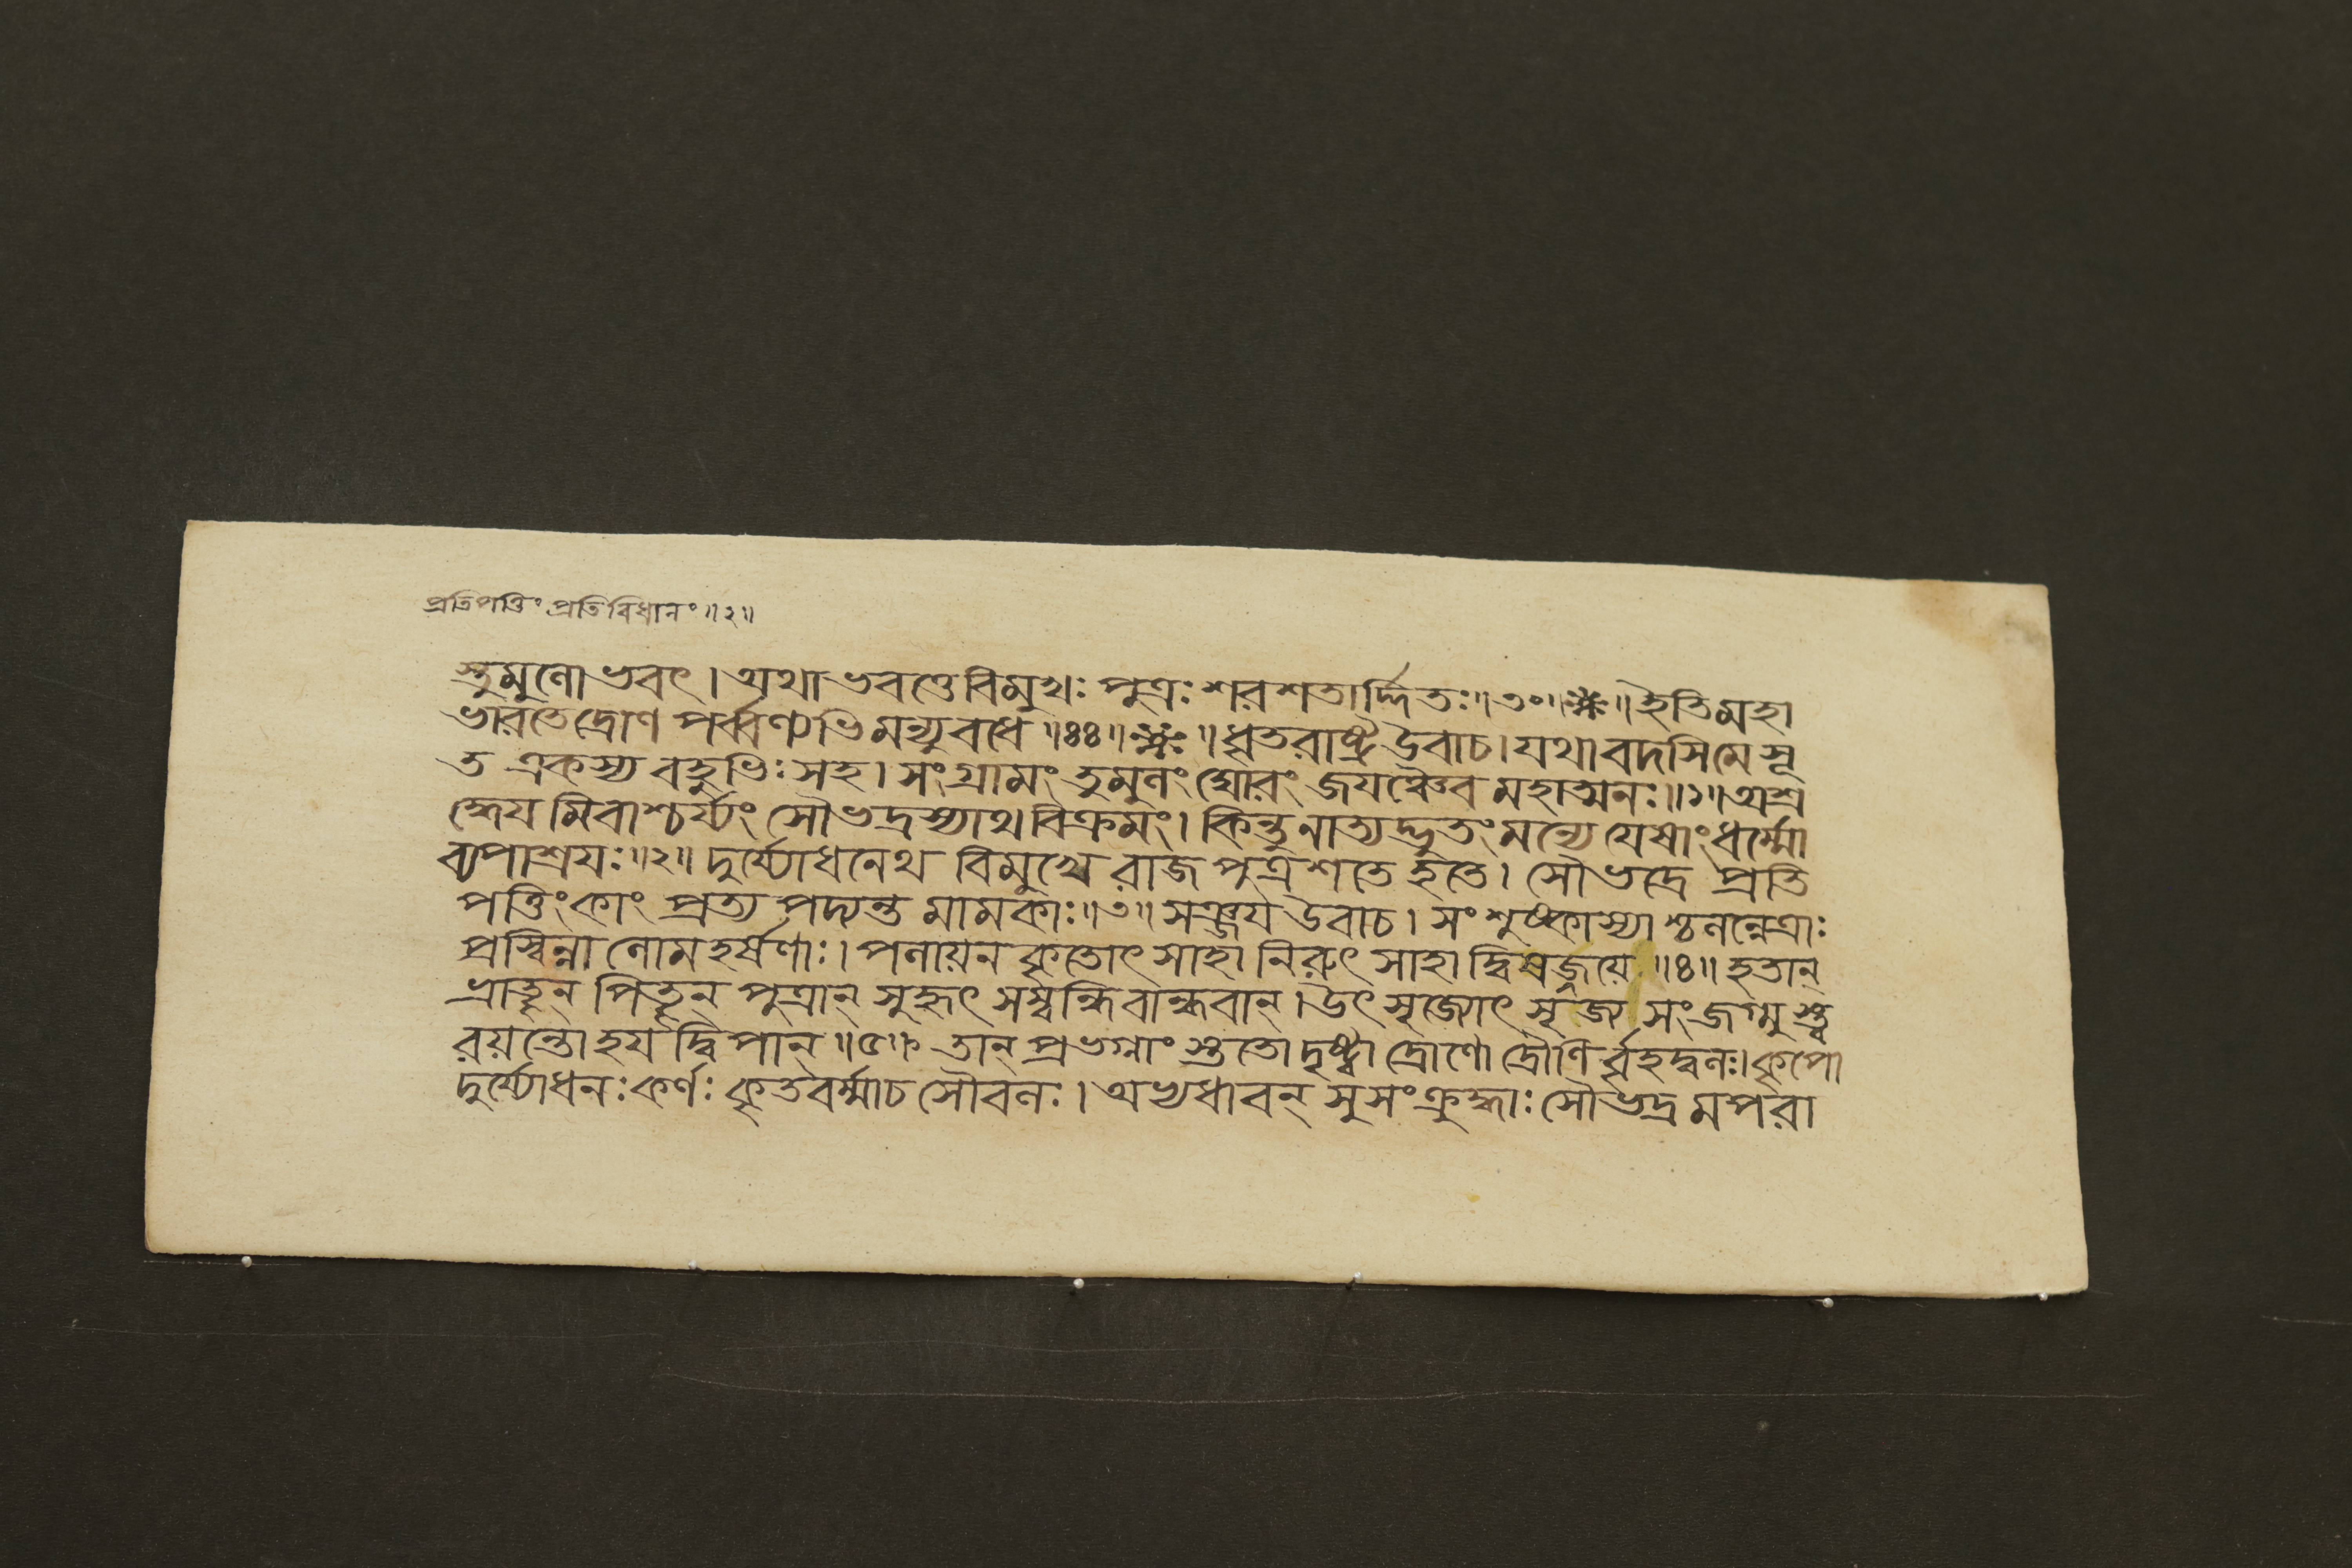 প্রতিপত্তিং প্রতিবিধানং॥২॥
স্তুমুলোভবৎ। অথাভবত্তেবিমুখঃ পুত্রঃ শরশতার্দ্দিতঃ॥৩০॥ ॥ইতিমহা
ভারতেদ্রোণ পর্ব্বণ্যভিমন্যুবধে॥৪৪॥ ॥ধৃতরাষ্ট্রউবাচ।যথাবদসিমেসূ
ত একস্য বহুভিঃ সহ। সংগ্রামং তুমুলং ঘোরং জয়ঞ্চৈব মহাত্মনঃ॥১॥অশ্র
দ্ধেয়মিবাশ্চর্য্যং সৌভদ্রস্যাথবিক্রমং। কিন্তুনাত্যদ্ভুতং মন্যে যেষাংধর্ম্মো
ব্যপাশ্রয়ঃ॥২॥ দুর্য্যোধনেথ বিমুখে রাজপুত্রশতে হতে। সৌভদ্রে প্রতি
পত্তিংকাং প্রত্যপদ্যন্ত মামকাঃ॥৩॥ সঞ্জয়উবাচ। সংশুষ্কাস্যাশ্চলন্নেত্রাঃ
প্রস্বিন্না লোমহর্ষণাঃ। পলায়নকৃতোৎসাহা নিরুৎসাহাদ্বিষজ্জয়ে॥৪॥ হতান্
ভ্রাতৄন্ পিতৄন্ পুত্রান্ সুহৃৎ সম্বন্ধিবান্ধবান্। উৎসৃজ্যোৎসৃজ্য সংজগ্মুস্ত্ব
রয়ন্তো হয়দ্বিপান্॥৫॥ তান্ প্রভগ্নাং স্ততো দৃষ্ট্বা দ্রোণো দ্রৌণি র্ব্বৃহদ্বলঃ।কৃপো
দুর্য্যোধনঃ কর্ণঃ কৃতবর্ম্মাচ সৌবলঃ। অভ্যধাবন্ সুসংক্রুদ্ধাঃ সৌভদ্রমপরা